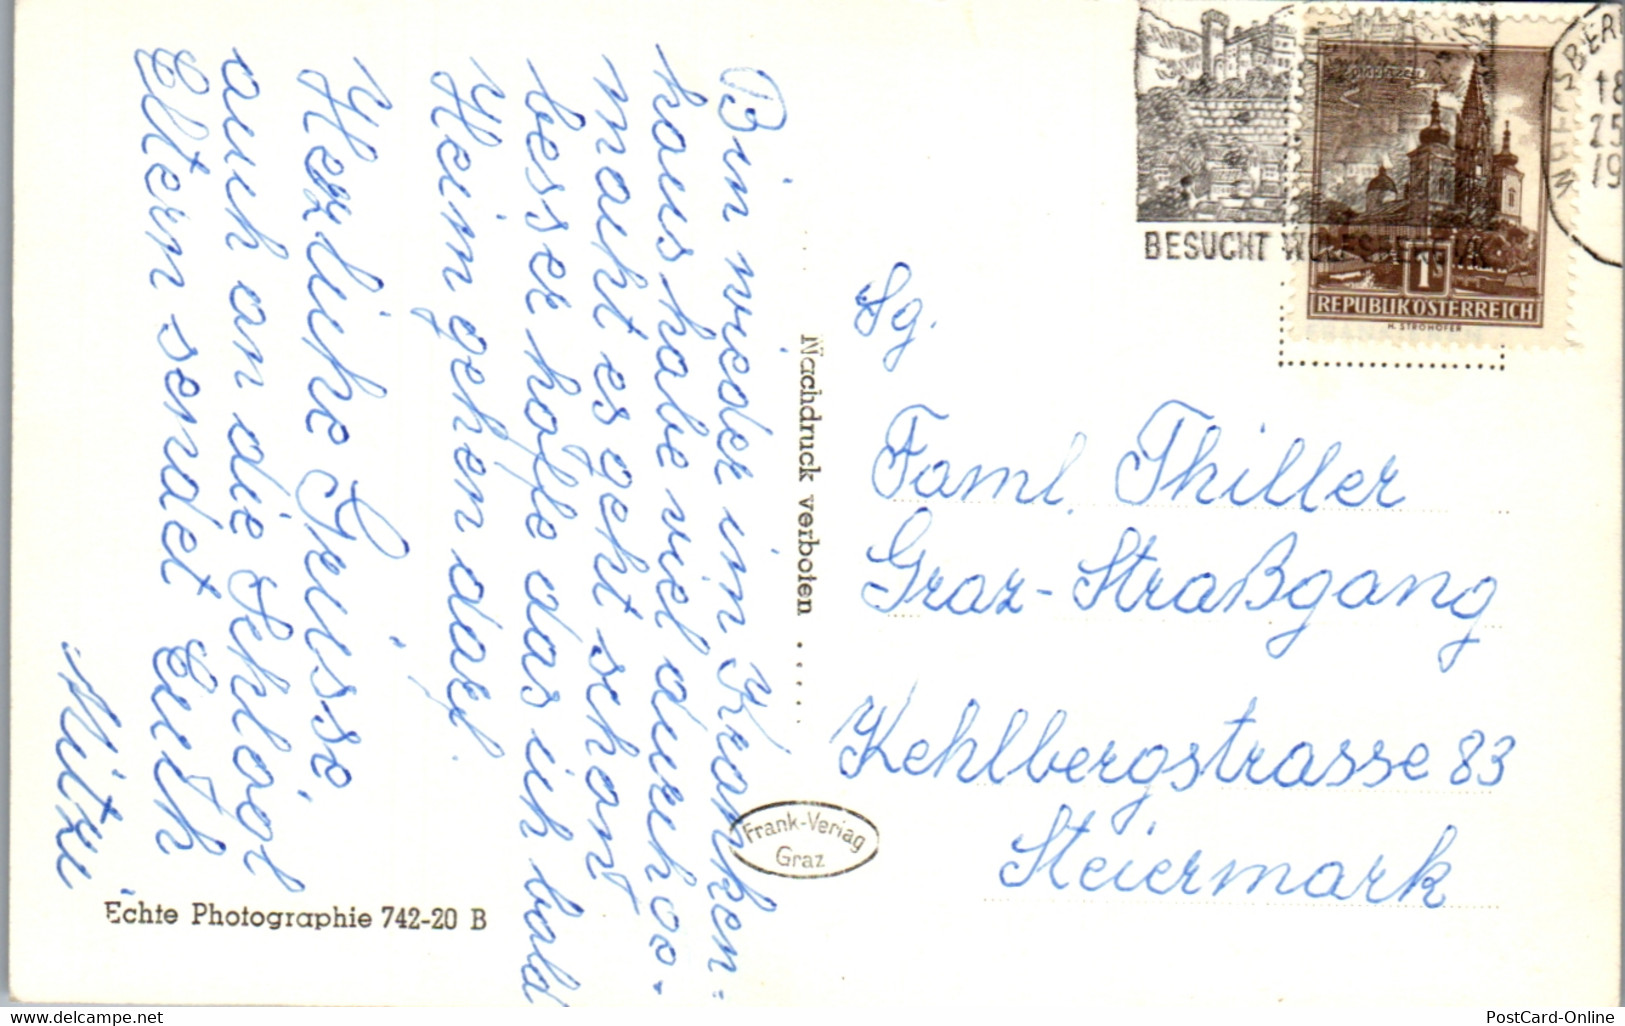 Bin wieder im Kranken-
haus habe viel durchge-
macht es geht schon
besser hoffe das ich bald
Heim gehen darf.
Herzliche Grüsse,
auch an die Schlögl
Eltern sendet Euch
Mitzi
Nachdruck verboten
Echte Photographie 742-20 B
Frank-Verlag
Graz
BESUCHT WOLFSBERG
REPUBLIK ÖSTERREICH
H. STROHOFER
1
18
25
19
Sg.
Faml. Thiller
Graz-Straßgang
Kehlbergstrasse 83
Steiermark
PostCard-Online
www.delcampe.net